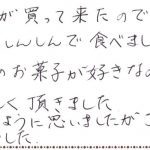 が買って来たので
しんしんで食べまし
のお菓子が好きなの
しく頂きました
ように思いましたがこ
した.